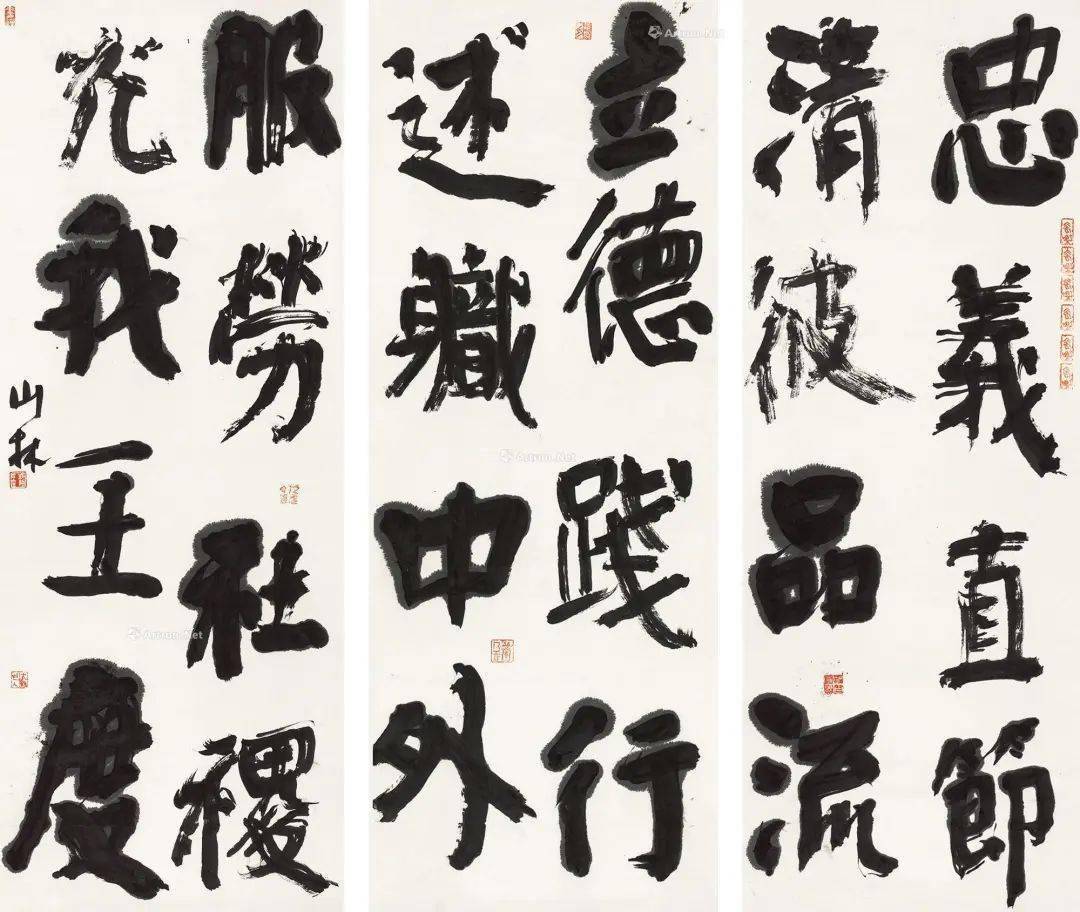 忠義直節
清彼品流
立德踐行
述軄中外
服勞社禝
光我王度
山林
Artron.Net
Artron.Net
Artron.Net